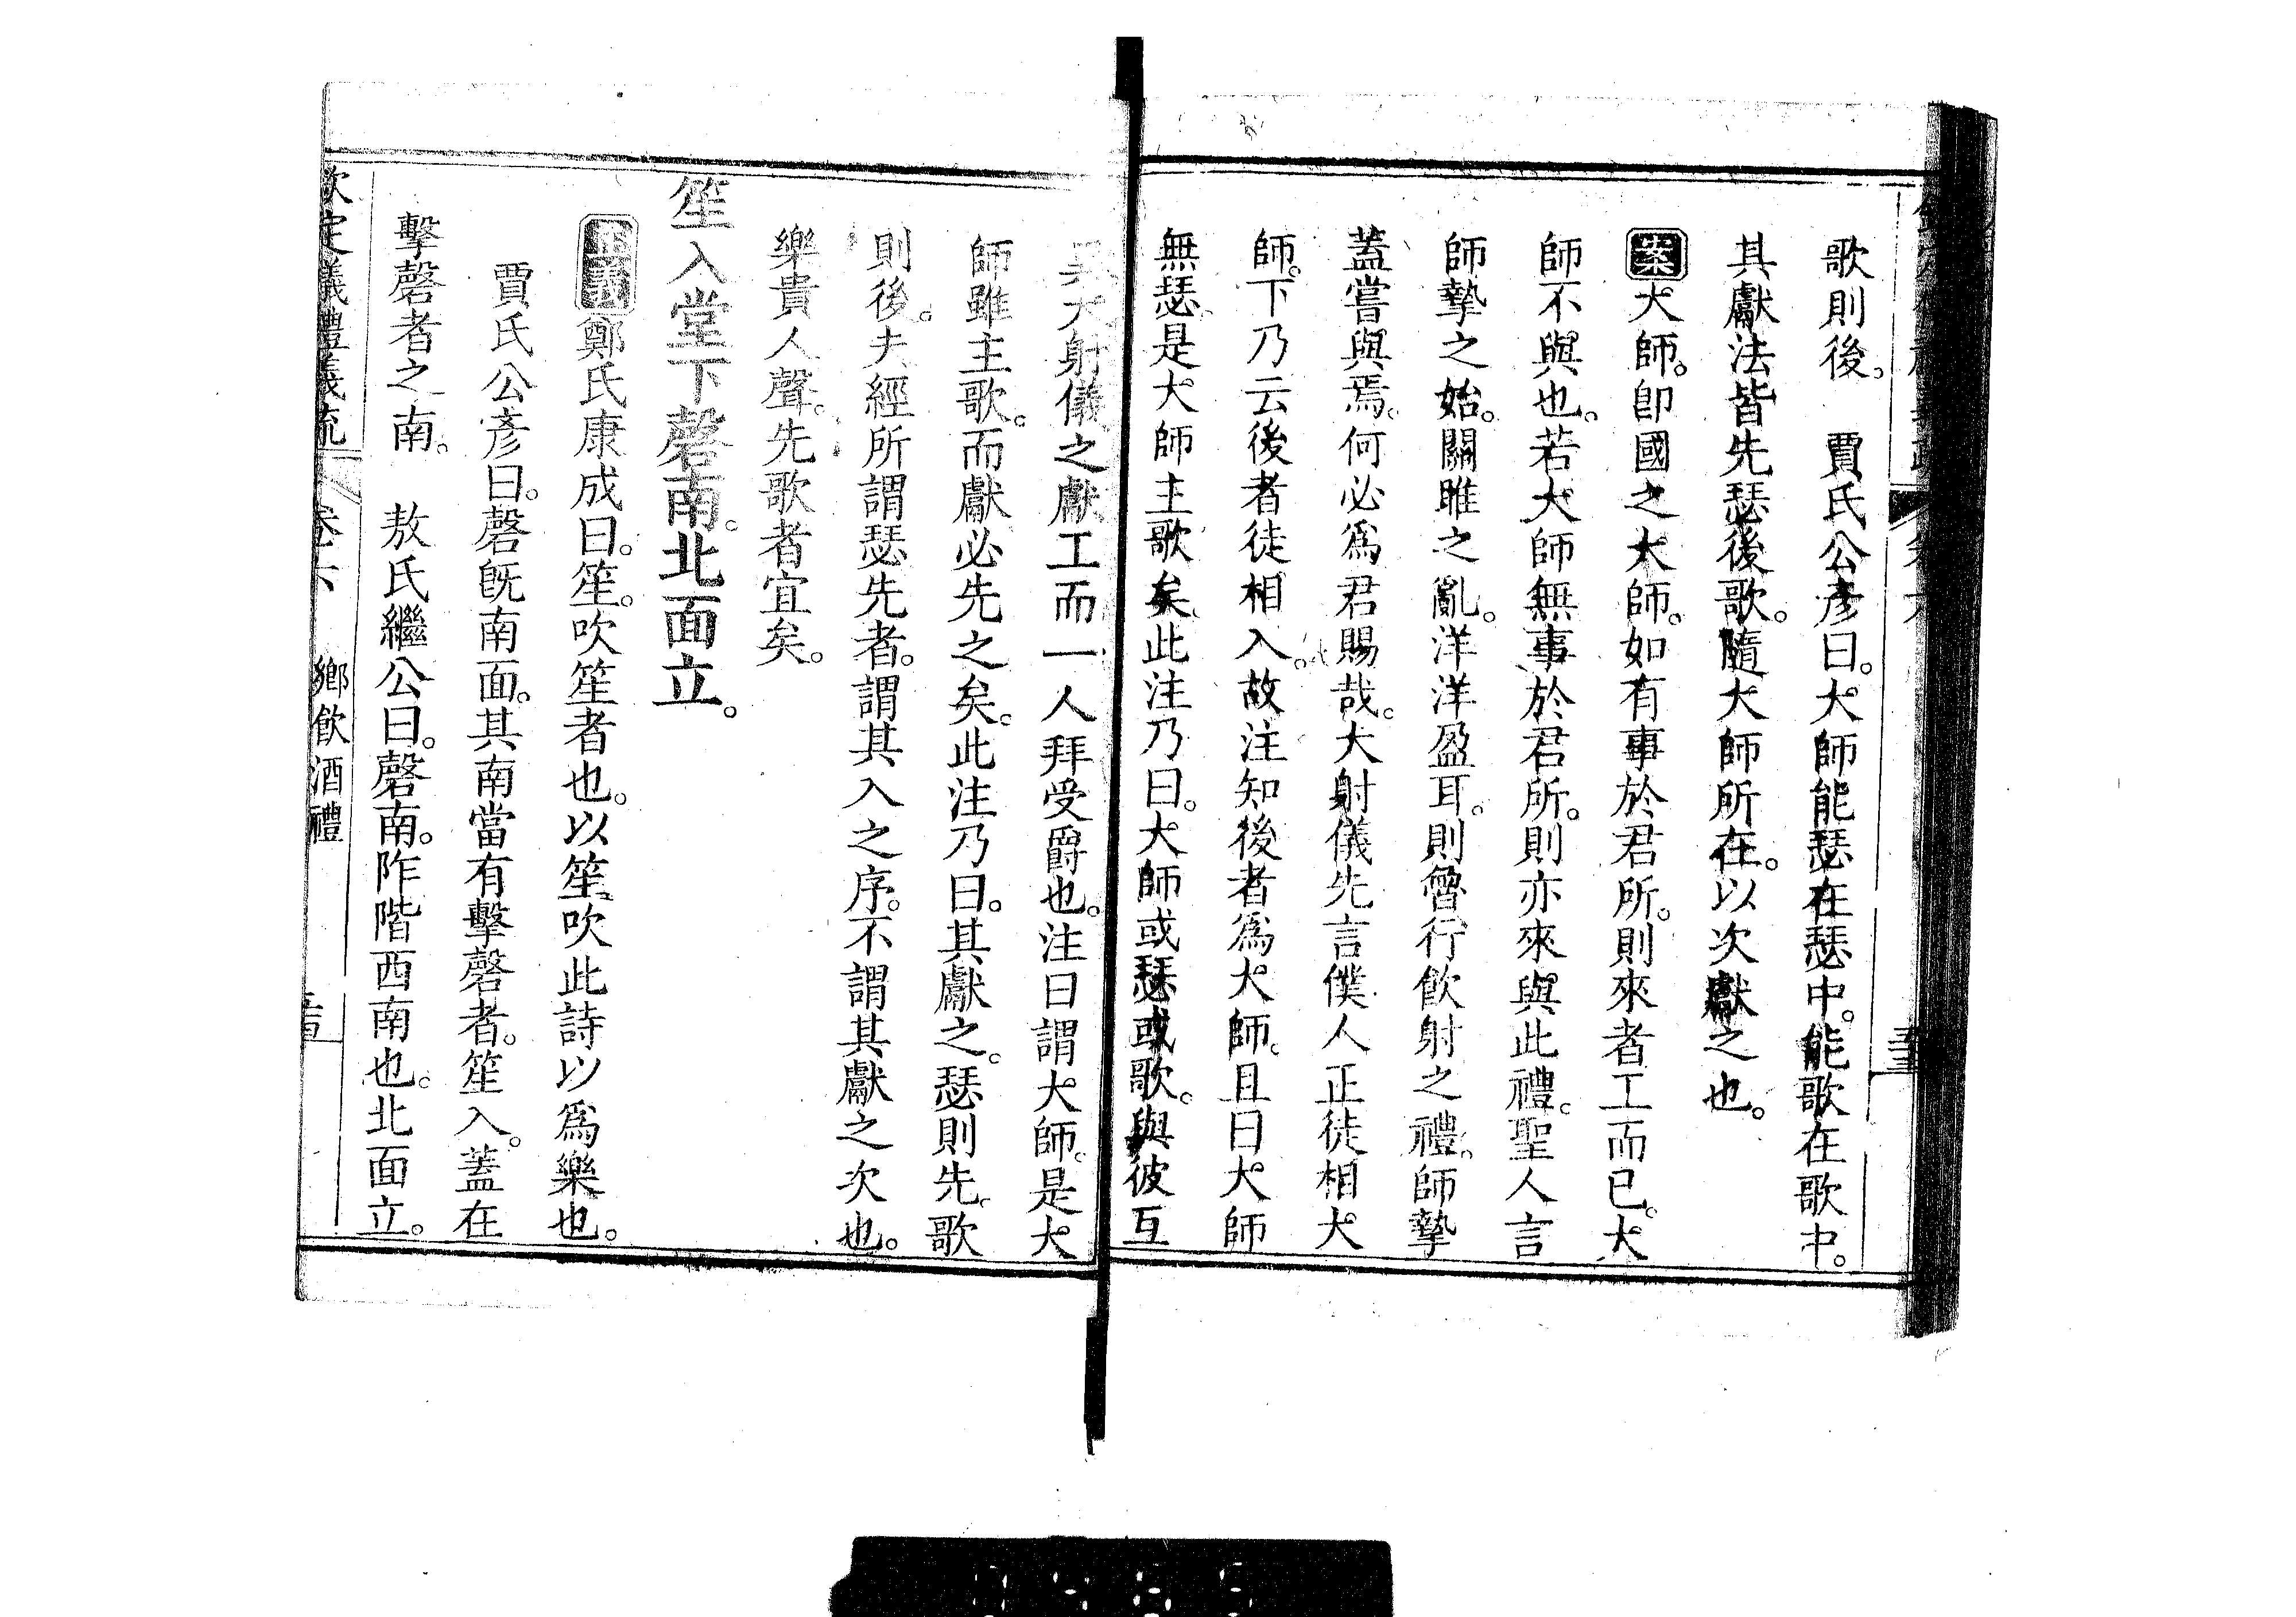 歌則後。　賈氏公彥曰。大師能瑟在瑟中。能歌在歌中。
其獻法皆先瑟後歌。隨大師所在。以次獻之也。
案大師。卽國之大師。如有事於君所。則來者工而已。大
師不與也。若大師無事於君所。則亦來與此禮。聖人言
師摯之始。關雎之亂。洋洋盈耳。則魯行飮射之禮。師摯
蓋嘗與焉。何必爲君賜哉。大射儀先言僕人正徒相大
師。下乃云後者徒相入。故注知後者爲大師。且曰大師
無瑟。是大師主歌矣。此注乃曰。大師或瑟或歌。與彼互
異。大射儀之獻工而一人拜受爵也。注曰謂大師。是大
師雖主歌。而獻必先之矣。此注乃曰。其獻之。瑟則先。歌
則後。夫經所謂瑟先者。謂其入之序。不謂其獻之次也。
樂貴人聲。先歌者宜矣。
笙入堂下磬南。北面立。
正義鄭氏康成曰。笙。吹笙者也。以笙吹此詩以爲樂也。
賈氏公彥曰。磬旣南面。其南當有擊磬者。笙入。蓋在
擊磬者之南。　敖氏繼公曰。磬南。阼階西南也。北面立。
欽定儀禮義疏　卷六　鄉飮酒禮